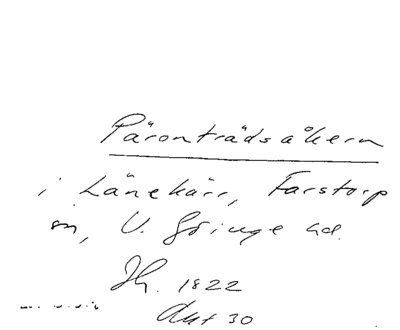 Päronträdsåkern
i Länekärr, Farstorp
sn, V. Göinge hd.
Jh. 1822
Akt 30